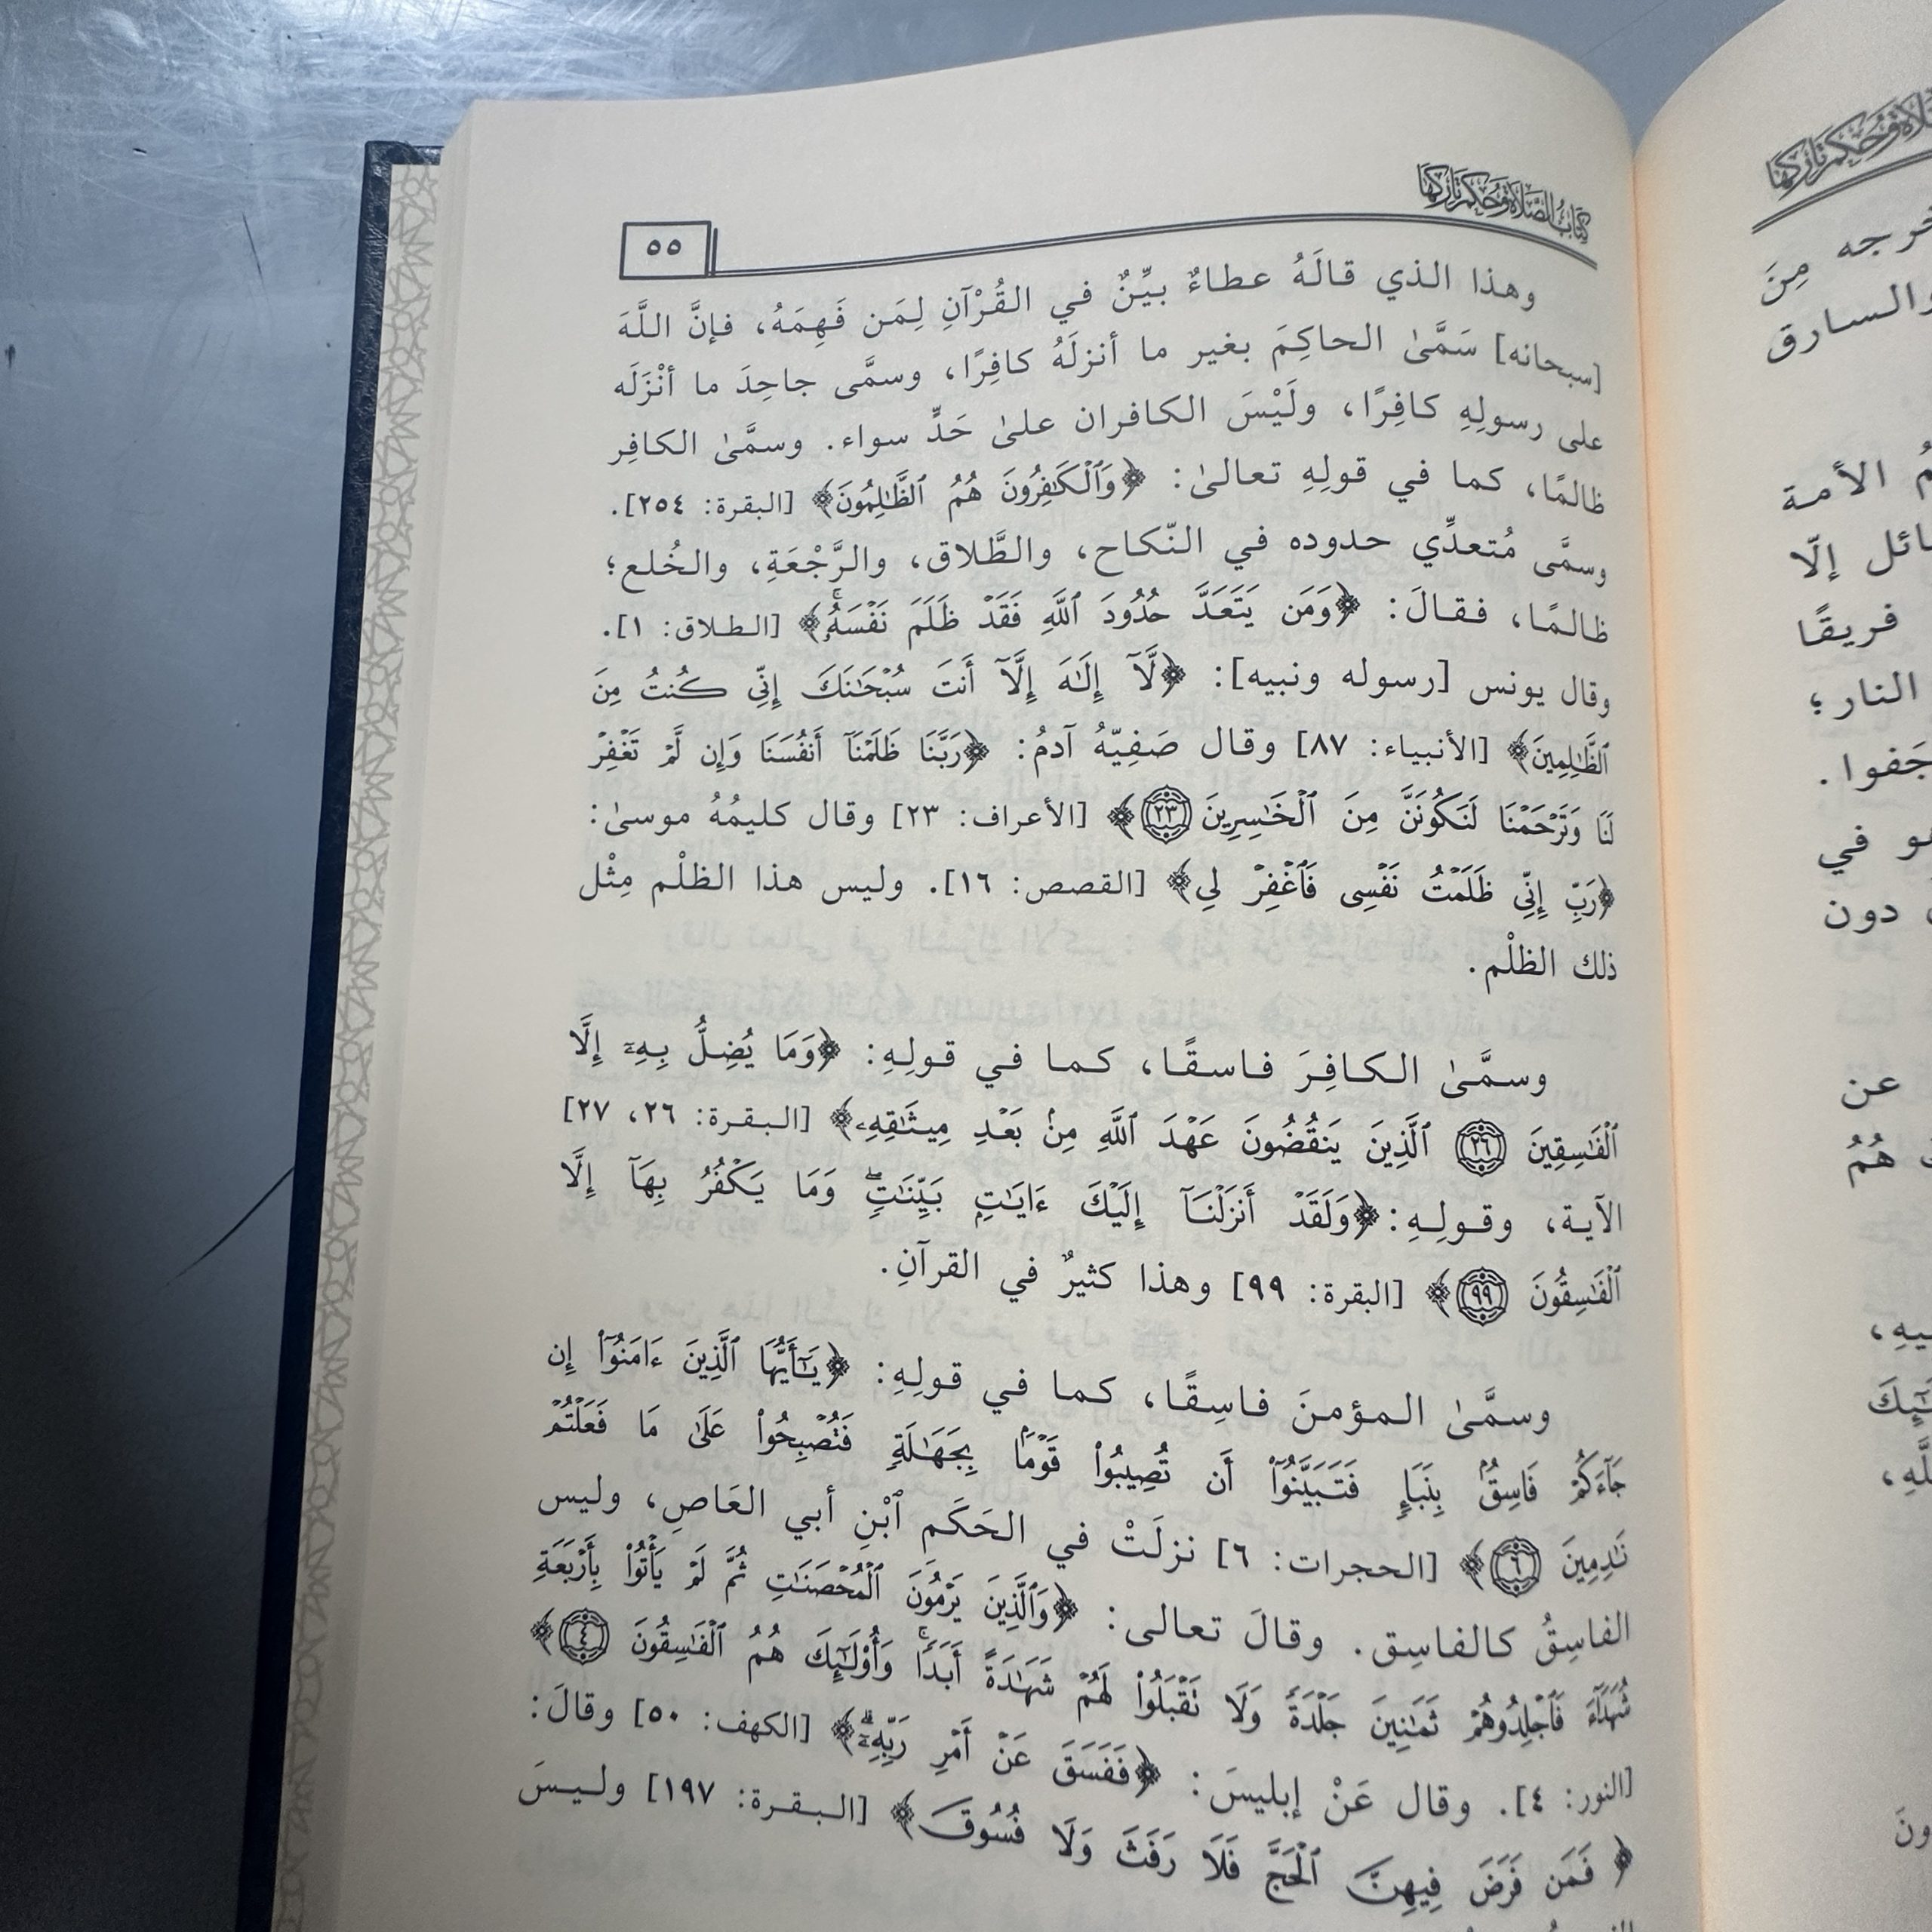 كتاب الصلاة وحكم تاركها
٥٥
وهذا الذي قالَهُ عطاءٌ بيِّنٌ في القُرْآنِ لِمَن فَهِمَهُ، فإنَّ اللَّهَ
[سبحانه] سَمَّىٰ الحاكِمَ بغير ما أنزلَهُ كافِرًا، وسمَّى جاحِدَ ما أنْزَلَه
على رسولِهِ كافِرًا، ولَيْسَ الكافران علىٰ حَدٍّ سواء. وسمَّىٰ الكافِر
ظالمًا، كما في قولِهِ تعالىٰ: ﴿وَٱلْكَٰفِرُونَ هُمُ ٱلظَّٰلِمُونَ﴾ [البقرة: ٢٥٤].
وسمَّى مُتعدِّي حدوده في النّكاح، والطَّلاق، والرَّجْعَةِ، والخُلع؛
ظالمًا، فقالَ: ﴿وَمَن يَتَعَدَّ حُدُودَ ٱللَّهِ فَقَدْ ظَلَمَ نَفْسَهُۥۚ﴾ [الطلاق: ١].
وقال يونس [رسوله ونبيه]: ﴿لَّآ إِلَٰهَ إِلَّآ أَنتَ سُبْحَٰنَكَ إِنِّي كُنتُ مِنَ
ٱلظَّٰلِمِينَ﴾ [الأنبياء: ٨٧] وقال صَفِيّهُ آدمُ: ﴿رَبَّنَا ظَلَمْنَآ أَنفُسَنَا وَإِن لَّمْ تَغْفِرْ
لَنَا وَتَرْحَمْنَا لَنَكُونَنَّ مِنَ ٱلْخَٰسِرِينَ ٢٣﴾ [الأعراف: ٢٣] وقال كليمُهُ موسىٰ:
﴿رَبِّ إِنِّي ظَلَمْتُ نَفْسِي فَٱغْفِرْ لِي﴾ [القصص: ١٦]. وليس هذا الظلْم مِثْل
ذلك الظلْم.
وسمَّىٰ الكافِرَ فاسقًا، كما في قولِهِ: ﴿وَمَا يُضِلُّ بِهِۦٓ إِلَّا
ٱلْفَٰسِقِينَ ٢٦ ٱلَّذِينَ يَنقُضُونَ عَهْدَ ٱللَّهِ مِنۢ بَعْدِ مِيثَٰقِهِۦ﴾ [البقرة: ٢٦، ٢٧]
الآية، وقولِهِ: ﴿وَلَقَدْ أَنزَلْنَآ إِلَيْكَ ءَايَٰتٍۭ بَيِّنَٰتٍۖ وَمَا يَكْفُرُ بِهَآ إِلَّا
ٱلْفَٰسِقُونَ ٩٩﴾ [البقرة: ٩٩] وهذا كثيرٌ في القرآنِ.
وسمَّىٰ المؤمنَ فاسِقًا، كما في قولِهِ: ﴿يَٰٓأَيُّهَا ٱلَّذِينَ ءَامَنُوٓا۟ إِن
جَآءَكُمْ فَاسِقٌۢ بِنَبَإٍ فَتَبَيَّنُوٓا۟ أَن تُصِيبُوا۟ قَوْمًۢا بِجَهَٰلَةٍ فَتُصْبِحُوا۟ عَلَىٰ مَا فَعَلْتُمْ
نَٰدِمِينَ ٦﴾ [الحجرات: ٦] نزلَتْ في الحَكَم ٱبْنِ أبي العَاصِ، وليس
الفاسِقُ كالفاسِق. وقالَ تعالى: ﴿وَٱلَّذِينَ يَرْمُونَ ٱلْمُحْصَنَٰتِ ثُمَّ لَمْ يَأْتُوا۟ بِأَرْبَعَةِ
شُهَدَآءَ فَٱجْلِدُوهُمْ ثَمَٰنِينَ جَلْدَةً وَلَا تَقْبَلُوا۟ لَهُمْ شَهَٰدَةً أَبَدًاۚ وَأُو۟لَٰٓئِكَ هُمُ ٱلْفَٰسِقُونَ ٤﴾
[النور: ٤]. وقال عَنْ إبليسَ: ﴿فَفَسَقَ عَنْ أَمْرِ رَبِّهِۦٓۗ﴾ [الكهف: ٥٠] وقالَ:
﴿فَمَن فَرَضَ فِيهِنَّ ٱلْحَجَّ فَلَا رَفَثَ وَلَا فُسُوقَ﴾ [البقرة: ١٩٧] وليسَ
مِنَ
والسارق
الأمة
إلّا
فريقًا
النار؛
في
دون
عن
هُمُ